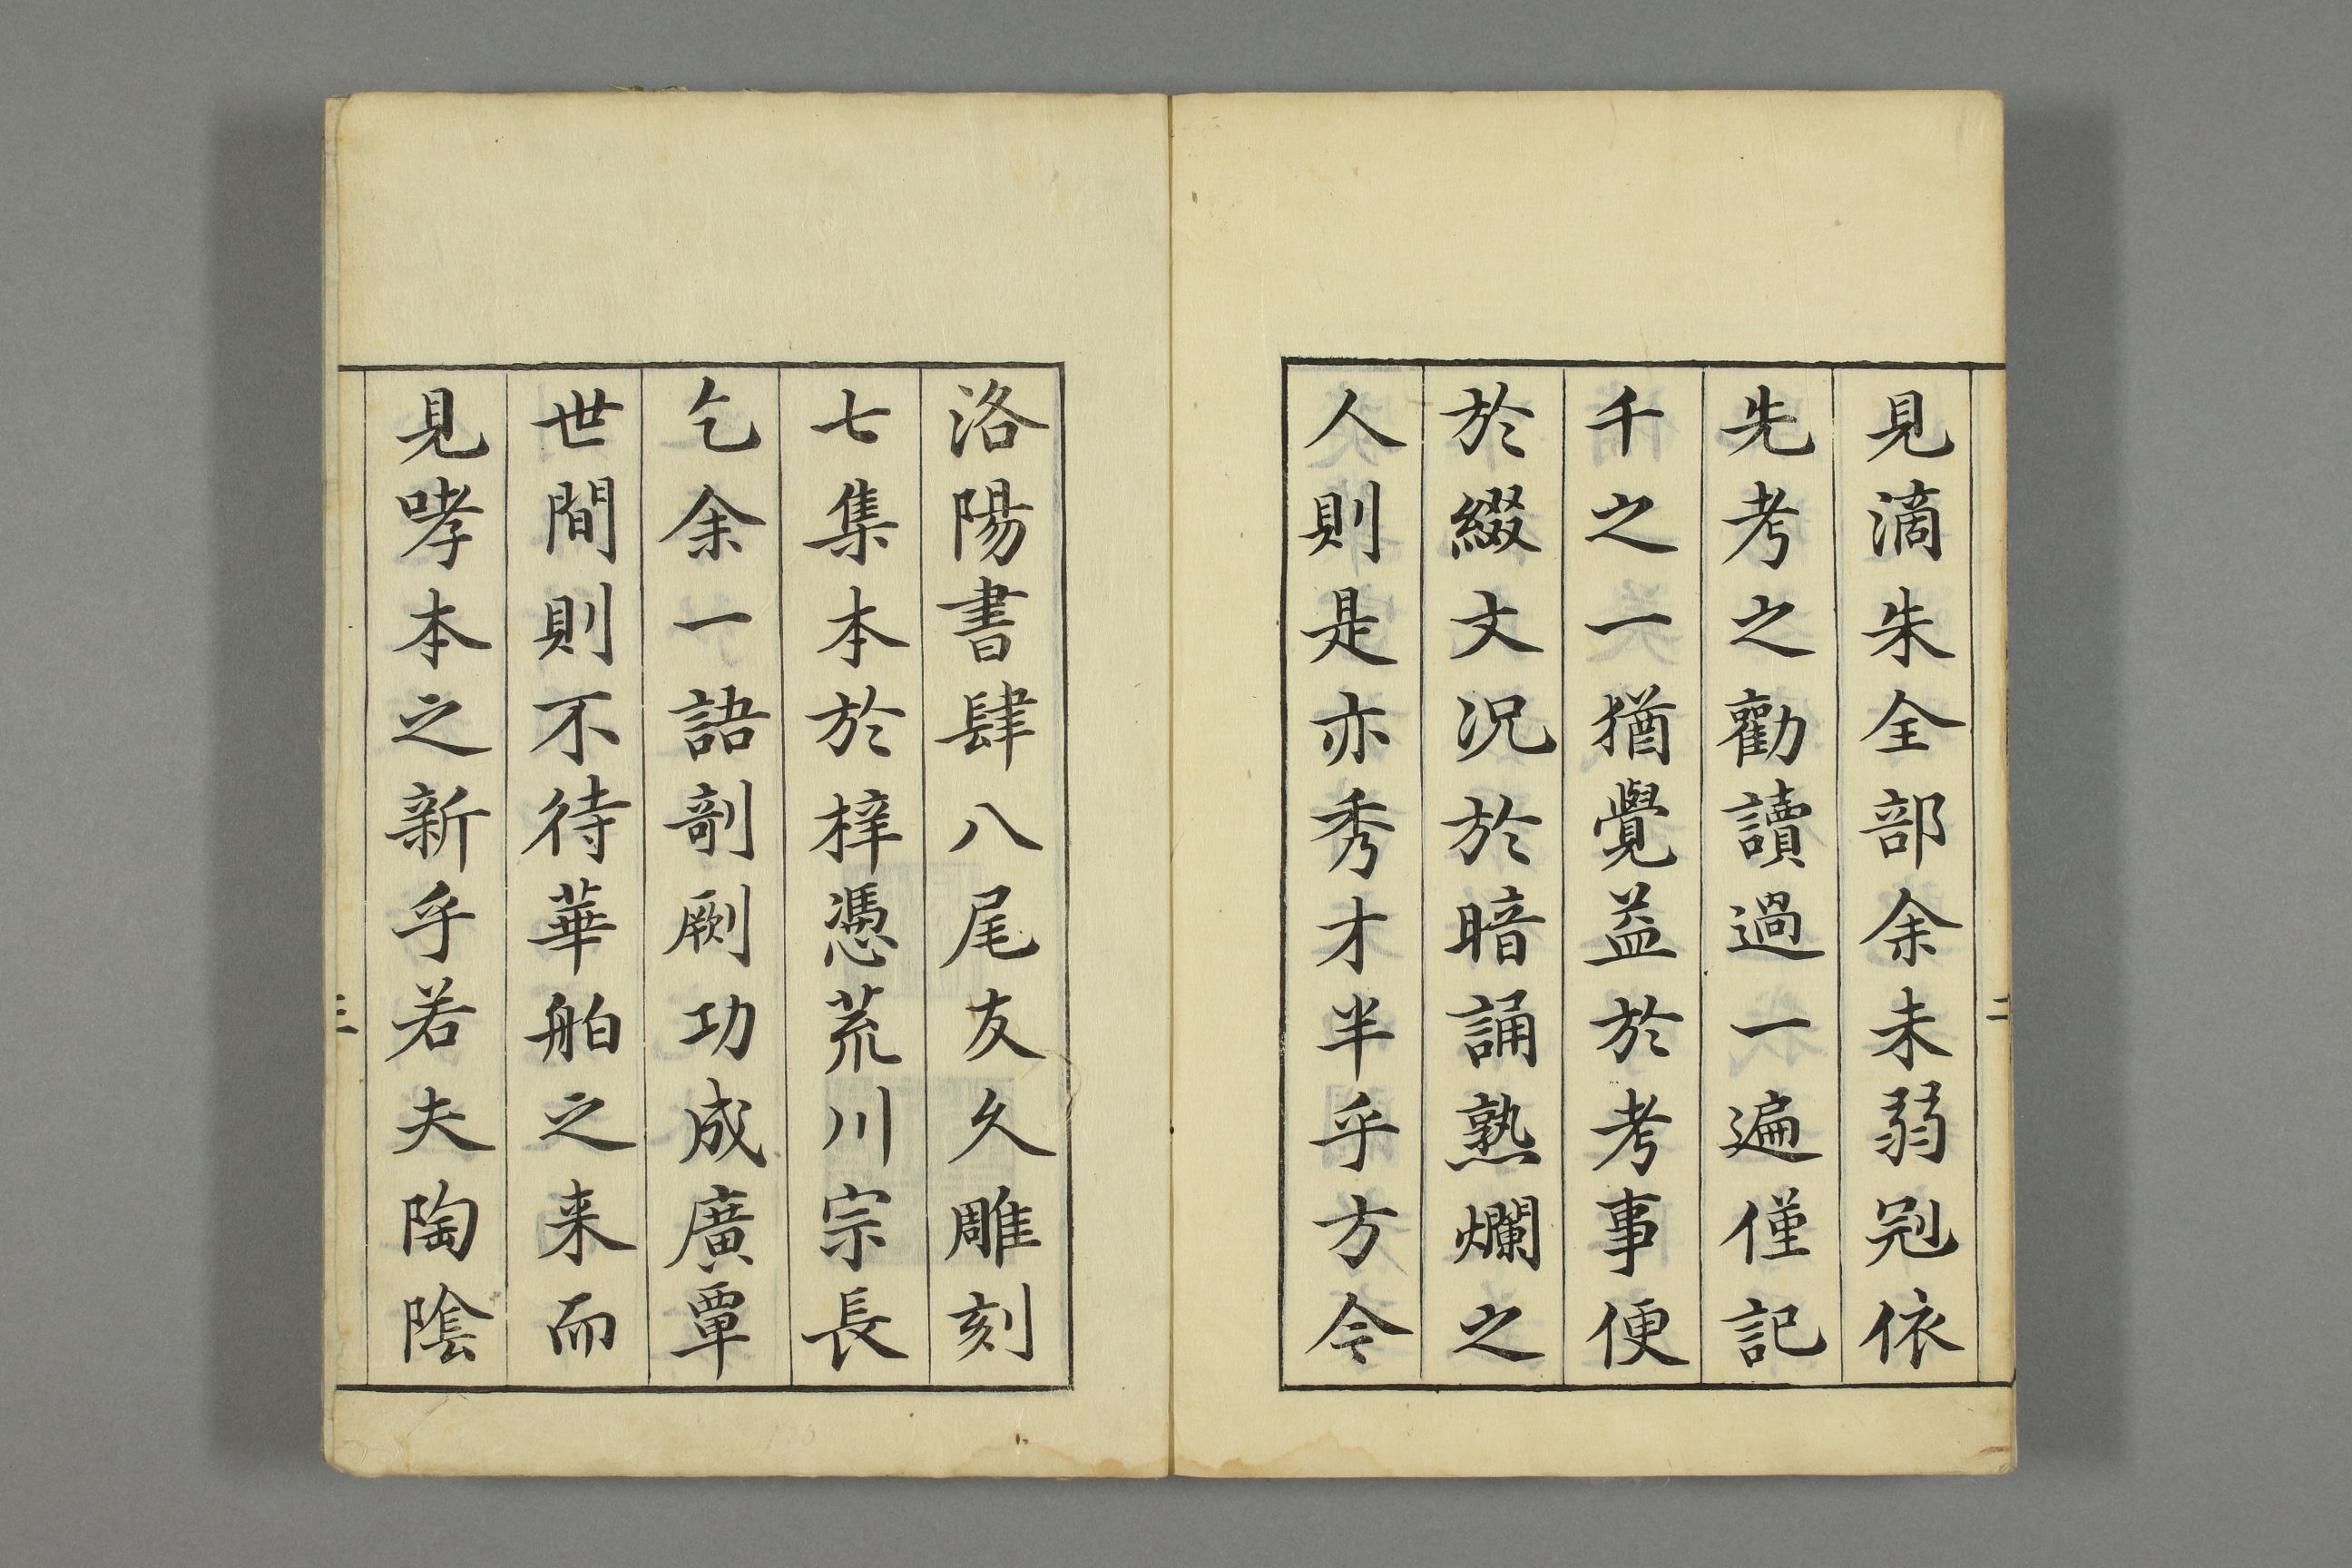 見滴朱全部余未弱冠依
先考之勸讀過一遍僅記
千之一猶覺益於考事便
於綴文况於暗誦熟爛之
人則是亦秀才半乎方今
二
洛陽書肆八尾友久雕刻
七集本於梓憑荒川宗長
乞余一語剞劂功成廣覃
世間則不待華舶之来而
見哮本之新乎若夫陶陰
三